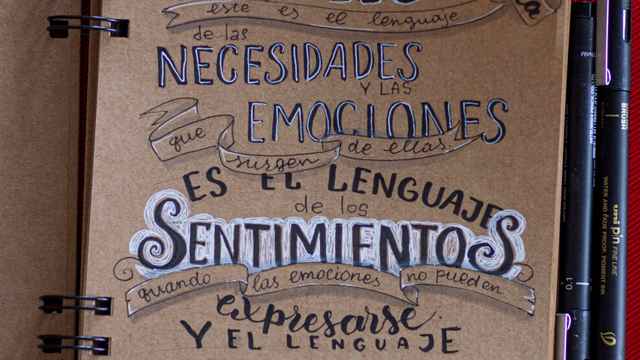 este es el lenguaje
de las
NECESIDADES
Y LAS
EMOCIONES
que surgen de ellas.
ES EL LENGUAJE
de los
SENTIMIENTOS
quando las emociones no pueden
expresarse.
Y EL LENGUAJE
BRUSH
uni pin FINE LINE
WATER AND FADE PROOF, PIGMENT INK
0.1